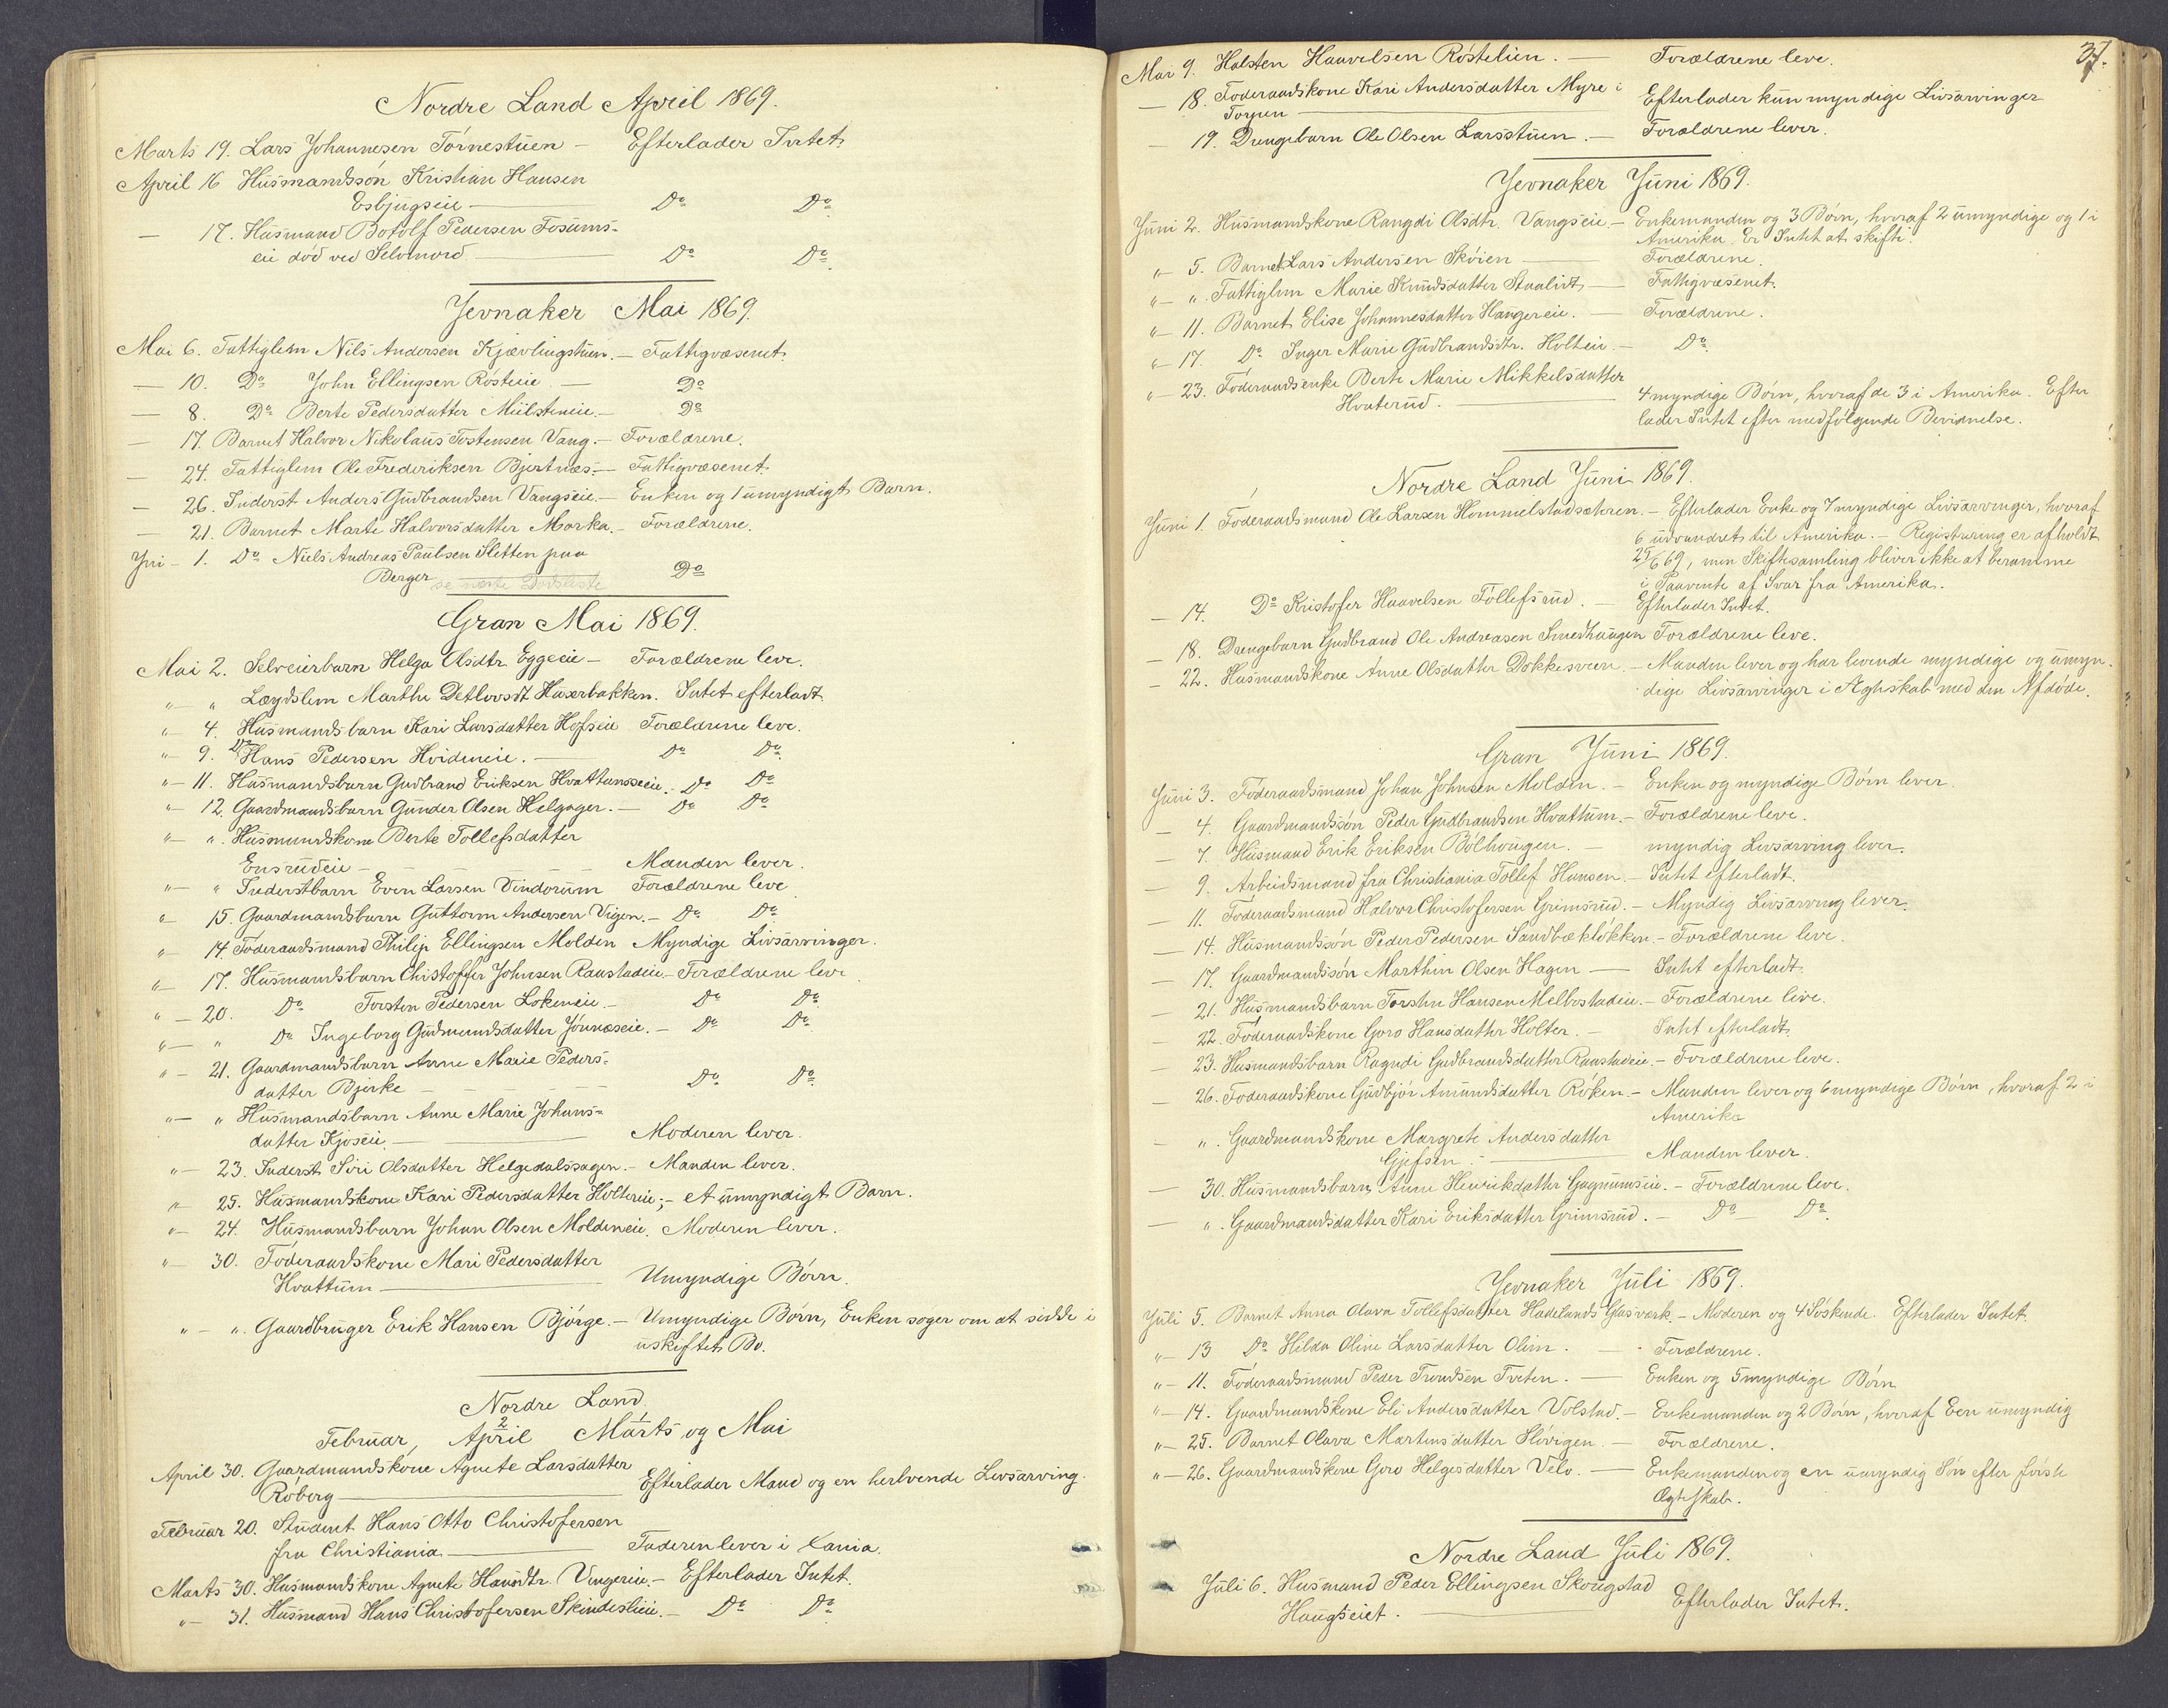 Nordre Land April 1869.
Marts 19. Lars Johannesen Törnestuen - Efterlader Intet
April 16 Husmandssön Kristian Hansen
Esbjugseie - Do Do
- 17. Husmand Botolf Pedersen Fosums-
eie död ved Selvmord - Do Do
Jevnaker Mai 1869.
Mai 6. Fattiglem Nils Andersen Kjævlingstuen. - Fattigvæsenet.
- 10. Do John Ellingsen Rösteie. - Do
- 8. Do Berte Pedersdatter Miilsteneie. - Do
- 17. Barnet Halvor Nikolaus Tostensen Vang. - Forældrene.
- 24. Fattiglem Ole Frederiksen Bjertnæs. - Fattigvæsenet.
- 26. Inderst Anders Gudbrandsen Vangseie. - Enken og 1 umyndigt Barn.
- 21. Barnet Marte Halvorsdatter Morka. - Forældrene.
Juni - 1. Do Niels Andreas Paulsen Sletten paa
Berger se næste Dødsliste Do
Gran Mai 1869.
Mai 2. Selveierbarn Helga Olsdtr. Eggeeie - Forældrene leve.
" " Lægdslem Marthe Detlovsdt Haserbakken. Intet efterladt.
" 4. Husmandsbarn Kari Larsdatter Hofseie Forældrene leve.
" 9. Do Hans Pedersen Hvideneie. - Do Do
" - 11. Husmandsbarn Gudbrand Eriksen Hvattumseie. - Do Do
" - 12. Gaardmandsbarn Gunder Olsen Helgager. - Do Do
" - ". Husmandskone Berte Tollefsdatter
Ensrudeie - Manden lever.
" - " Inderstbarn Even Larsen Vindorum Forældrene leve
" 15. Gaardmandsbarn Guttorm Andersen Vigen. - Do Do
" 14. Föderaadsmand Philip Ellingsen Molden Myndige Livsarvinger.
" 17. Husmandsbarn Christoffer Johnsen Raastadeie - Forældrene leve
" - 20. Do Torsten Pedersen Lokeneie. - Do Do
" - " Do Ingeborg Gudmundsdatter Jönnæseie. - Do Do
" - 21. Gaardmandsbarn Anne Marie Peders-
datter Bjerke - Do Do
" - " Husmandsbarn Anne Marie Johans-
datter Kjoseie - Moderen lever.
" - 23. Inderst Siri Olsdatter Helgedalssagen. - Manden lever.
" 25. Husmandskone Kari Pedersdatter Holteeie; - et umyndigt Barn.
" - 24. Husmandsbarn Johan Olsen Moldeneie. Moderen lever.
" - 30. Föderaadskone Mari Pedersdatter
Hvattum - Umyndige Börn.
" - ". Gaardbruger Erik Hansen Björge. - Umyndige Börn, Enken søger om at sidde i
uskiftet Bo.
Nordre Land.
Februar, 2 April 1 Marts og Mai
April 30. Gaardmandskone Agnete Larsdatter
Roberg - Efterlader Mand og en herlvende Livsarving.
Februar 20. Student Hans Otto Christofersen
fra Christiania - Faderen lever i Xania.
Marts 30. Husmandskone Agnete Hansdtr. Vingereie. - Efterlader Intet.
" - 31. Husmand Hans Christofersen Skindeslieie. - Do Do
37.
Mai 9. Halsten Haavelsen Röstelien. - Forældrene leve.
- 18. Föderaadskone Kari Andersdatter Myre i
Torpen - Efterlader kun myndige Livsarvinger
- 19. Drengebarn Ole Olsen Larsstuen. - Forældrene lever.
Jevnaker Juni 1869.
Juni 2. Husmandskone Rangdi Olsdtr. Vangseie. - Enkemanden og 3 Börn, hvoraf 2 umyndige og 1 i
Amerika. Er Intet at skifte.
" 5. Barnet Lars Andersen Sköien - Forældrene.
" - ". Fattiglem Marie Knudsdatter Staalidt - Fattigvæsenet.
" 11. Barnet Elise Johannesdatter Haugereie. - Forældrene.
" 17. Do Inger Marie Gudbrandsdtr. Holteie. - Do
" 23. Föderaadsenke Berte Marie Mikkelsdatter
Hvaterud. - 4 myndige Börn, hvoraf de 3 i Amerika. Efter
lader Intet efter medfølgende Bevidnelse.
Nordre Land Juni 1869.
Juni 1. Föderaadsmand Ole Larsen Hommelstadsæteren. - Efterlader Enke og 7 myndige Livsarvinger, hvoraf
6 udvandret til Amerika. - Registrering er afholdt
25/6 69, men Skiftesamling bliver ikke at beramme
i Paavente af Svar fra Amerika.
- 14. Do Kristofer Haavelsen Tollefsrud. - Efterlader Intet.
- 18. Drengebarn Gudbrand Ole Andreasen Smedhaugen Forældrene leve.
- 22. Husmandskone Anne Olsdatter Dokkesveen. - Manden lever og har levende myndige og umyn-
dige Livsarvinger i Ægteskab med den Afdøde.
Gran Juni 1869.
Juni 3. Föderaadsmand Johan Johnsen Molden. - Enken og myndige Börn lever.
- 4. Gaardmandssön Peder Gudbrandsen Hvattum. - Forældrene leve.
- 7. Husmand Erik Eriksen Bölhaugen. - myndig Livsarving lever.
- 9. Arbeidsmand fra Christiania Tollef Hansen. - Intet efterladt.
- 11. Föderaadsmand Halvor Christofersen Grimsrud. - Myndig Livsarving lever.
- 14. Husmandssön Peder Pedersen Sandbæklökken. - Forældrene leve.
- 17. Gaardmandssön Marthin Olsen Hagen - Intet efterladt.
- 21. Husmandsbarn Torsten Hansen Melbostadeie. - Forældrene leve.
- 22. Föderaadskone Goro Hansdatter Holter. - Intet efterladt.
- 23. Husmandsbarn Ragndi Gudbrandsdatter Raastadeie. - Forældrene leve.
- 26. Föderaadskone Gudbjör Amundsdatter Röken. - Manden lever og 6 myndige Börn, hvoraf 2 i
Amerika
- ". Gaardmandskone Margrete Andersdatter
Gjefsen. - Manden lever.
- 30. Husmandsbarn Anne Henrikdatter Gagnumseie. - Forældrene leve.
- ". Gaardmandsdatter Kari Eriksdatter Grimsrud. - Do - Do
Jevnaker Juli 1869.
Juli 5. Barnet Anna Olava Tollefsdatter Hadelands Glasværk. - Moderen og 4 Söskende. Efterlader Intet.
" - 13 Do Hilda Oline Larsdatter Olim. - Forældrene.
" - 11. Föderaadsmand Peder Trondsen Tveten. - Enken og 5 myndige Börn
" - 14. Gaardmandskone Eli Andersdatter Volstad. - Enkemanden og 2 Börn, hvoraf Een umyndig
" - 25. Barnet Olava Martinsdatter Hövigen. - Forældrene.
" - 26. Gaardmandskone Goro Helgesdatter Velo. - Enkemanden og en umyndig Sön efter förste
Ægteskab.
Nordre Land Juli 1869.
Juli 6. Husmand Peder Ellingsen Skougstad
Haugseiet. - Efterlader Intet.